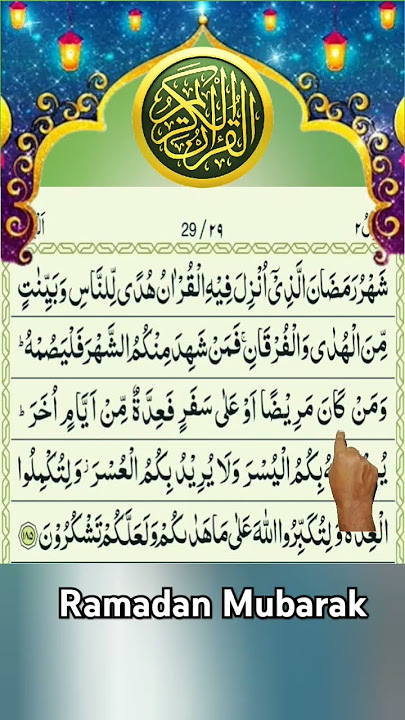 القرآن الكريم
29 / ٢٩
شَهْرُ رَمَضَانَ الَّذِیْۤ اُنْزِلَ فِیْهِ الْقُرْاٰنُ هُدًی لِّلنَّاسِ وَ بَیِّنٰتٍ
مِّنَ الْهُدٰی وَ الْفُرْقَانِ ۚ فَمَنْ شَهِدَ مِنْكُمُ الشَّهْرَ فَلْیَصُمْهُ ؕ
وَ مَنْ كَانَ مَرِیْضًا اَوْ عَلٰی سَفَرٍ فَعِدَّةٌ مِّنْ اَیَّامٍ اُخَرَ ؕ
بِكُمُ الْیُسْرَ وَ لَا یُرِیْدُ بِكُمُ الْعُسْرَ ؗ وَ لِتُكْمِلُوا
الْعِدَّةَ وَ لِتُكَبِّرُوا اللّٰهَ عَلٰی مَا هَدٰىكُمْ وَ لَعَلَّكُمْ تَشْكُرُوْنَ ۝۱۸۵
Ramadan Mubarak